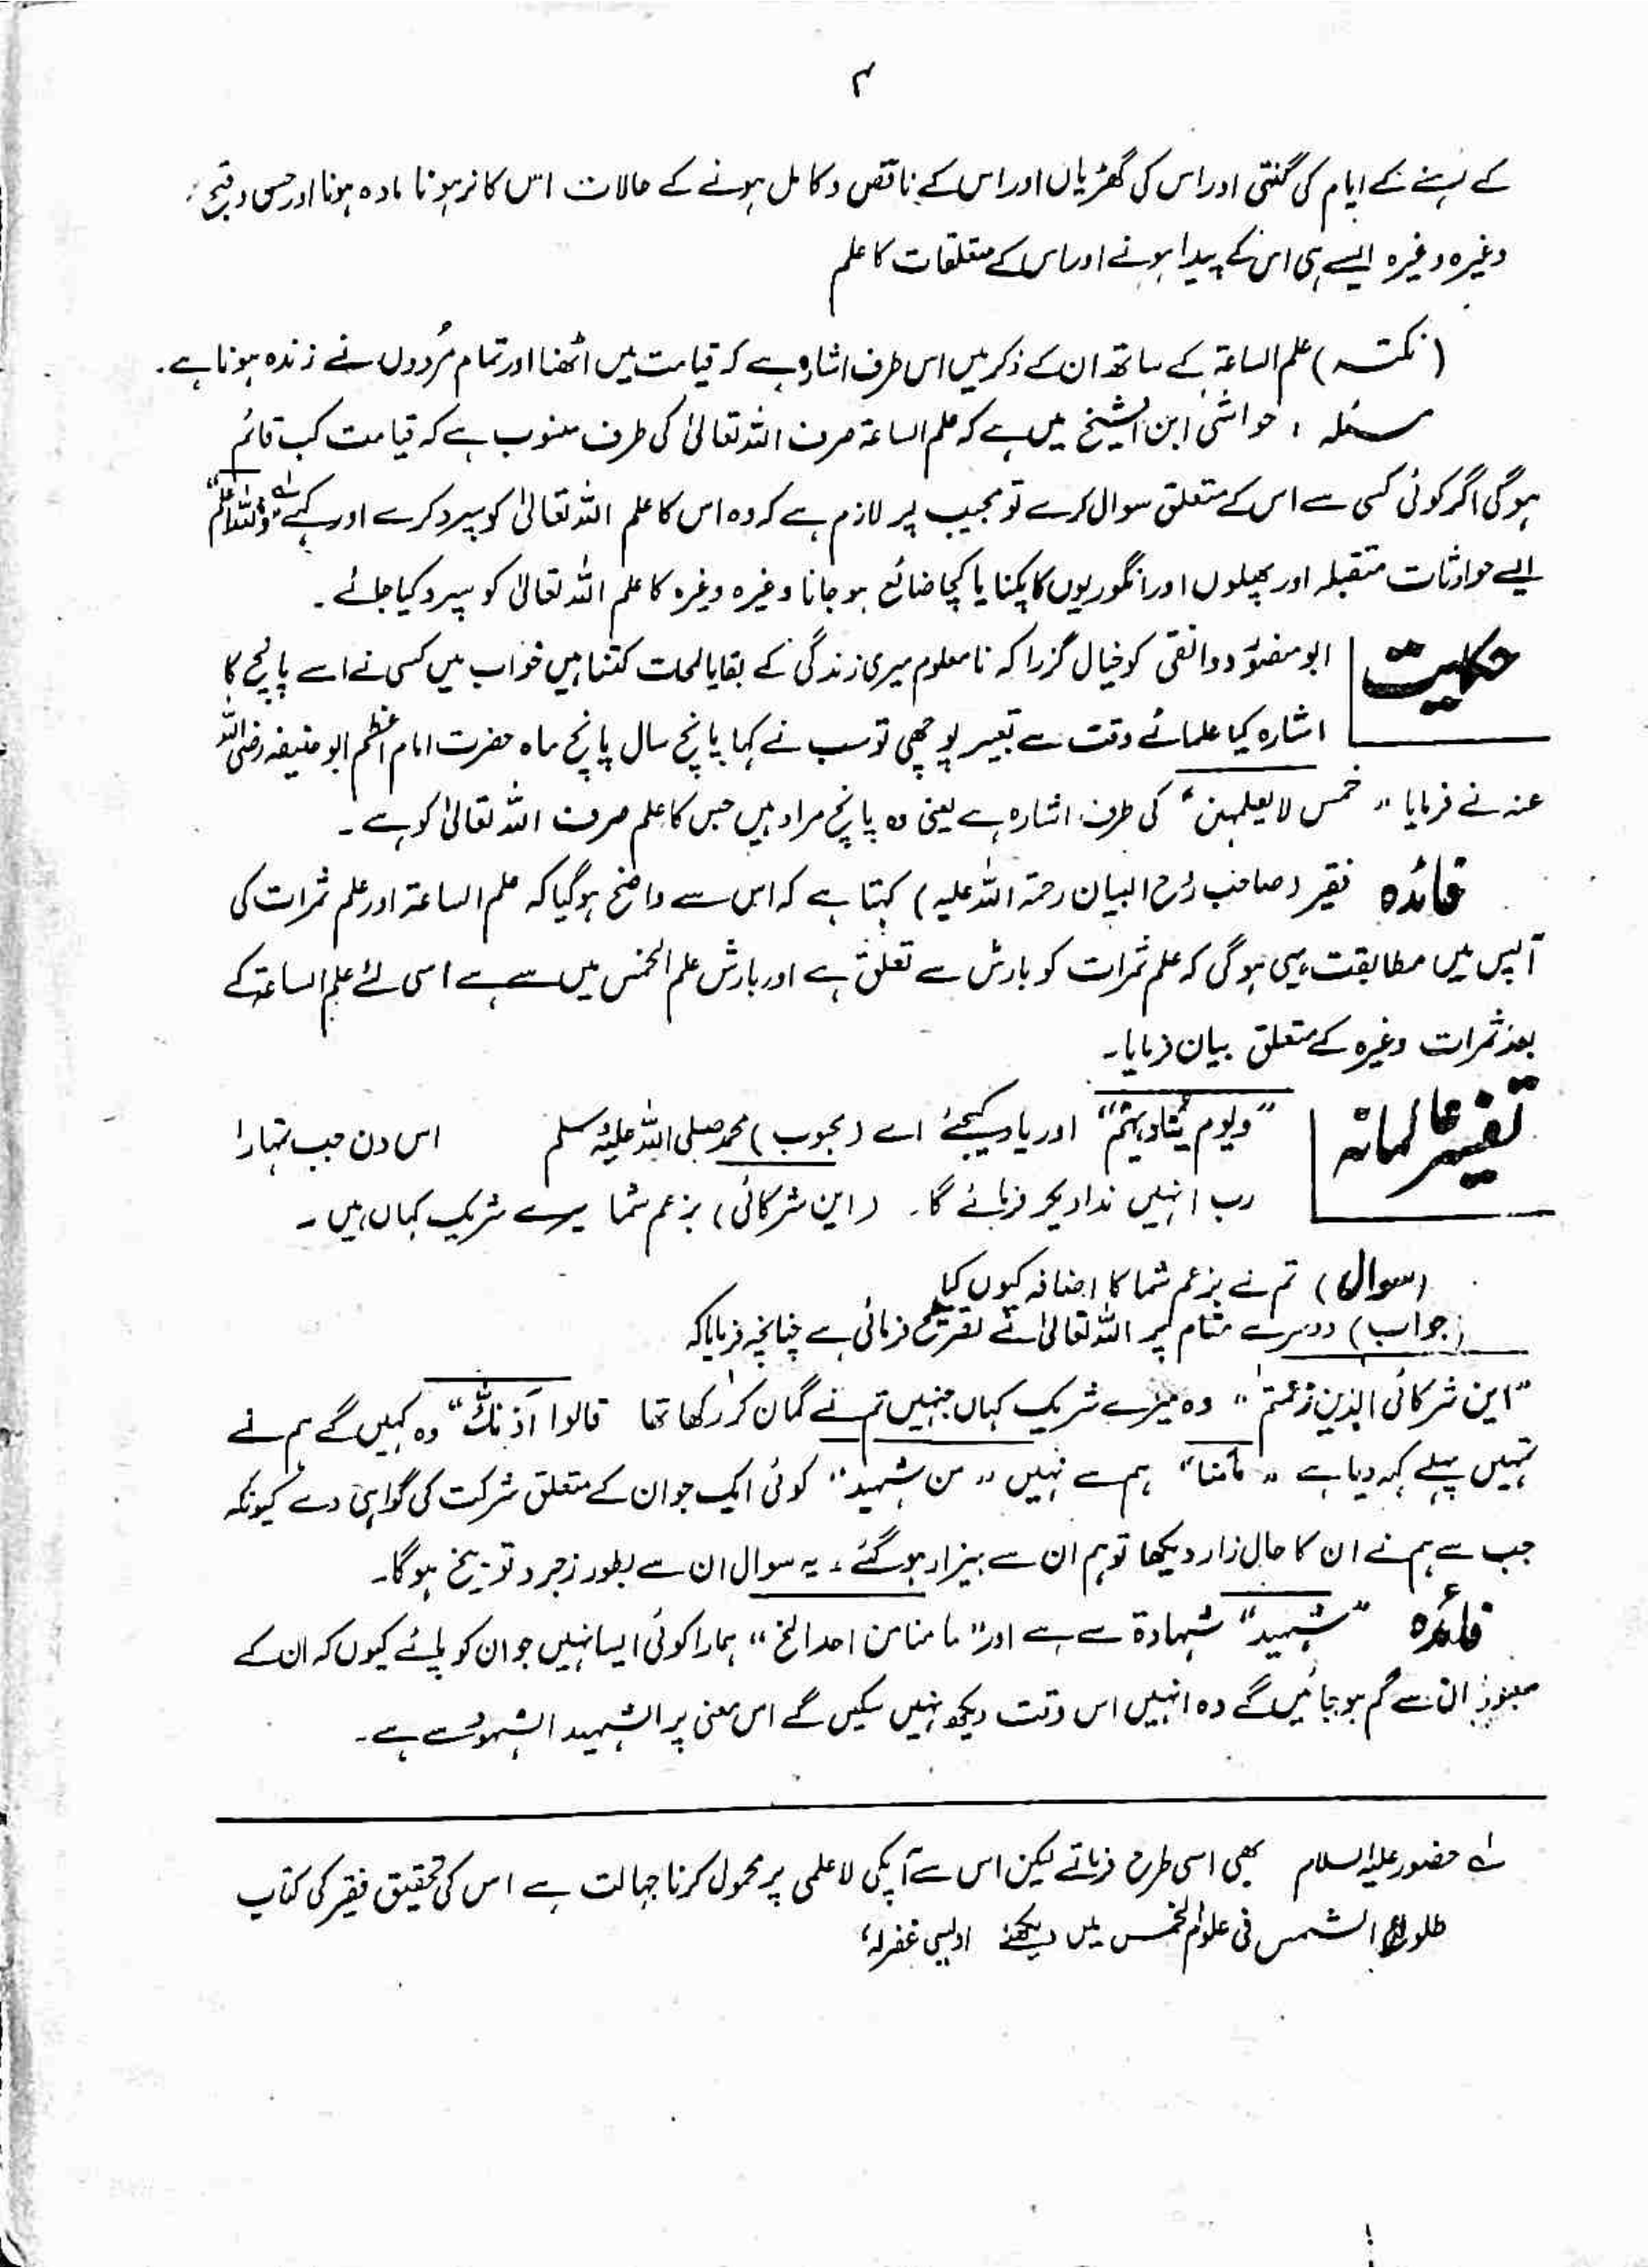 ۴
کے رہنے کے ایام کی گنتی اور اس کی گھڑیاں اور اس کے ناقص و کامل ہونے کے حالات اس کا نر ہونا مادہ ہونا اور حسن و قبح
وغیرہ وغیرہ ایسے ہی اس کے پیدا ہونے اور اس کے متعلقات کا علم
(نکتہ) علم الساعۃ کے ساتھ ان کے ذکر میں اس طرف اشارہ ہے کہ قیامت میں اٹھنا اور تمام مُردوں نے زندہ ہونا ہے۔
مسئلہ ، حواشی ابن الشیخ میں ہے کہ علم الساعۃ صرف اللہ تعالیٰ کی طرف منسوب ہے کہ قیامت کب قائم
ہوگی اگر کوئی کسی سے اس کے متعلق سوال کرے تو مجیب پر لازم ہے کہ وہ اس کا علم اللہ تعالیٰ کو سپرد کرے اور کہے "واللہ اعلم"
ایسے حوادثات متقبلہ اور پھلوں اور انگوریوں کا پکنا یا کچا ضائع ہو جانا وغیرہ وغیرہ کا علم اللہ تعالیٰ کو سپرد کیا جائے۔
حکایت ابو منصور دوانقی کو خیال گزرا کہ نامعلوم میری زندگی کے بقایا لمحات کتنا ہیں خواب میں کسی نے اسے پانچ کا
اشارہ کیا علمائے وقت سے تعبیر پوچھی تو سب نے کہا پانچ سال پانچ ماہ حضرت امام اعظم ابو حنیفہ رضی اللہ
عنہ نے فرمایا "خمس لا یعلمہن" کی طرف اشارہ ہے یعنی وہ پانچ مراد ہیں جس کا علم صرف اللہ تعالیٰ کو ہے۔
فائدہ فقیر (صاحب رُوح البیان رحمۃ اللہ علیہ) کہتا ہے کہ اس سے واضح ہو گیا کہ علم الساعۃ اور علم ثمرات کی
آپس میں مطابقت یہی ہوگی کہ علم ثمرات کو بارش سے تعلق ہے اور بارش علم الخمس میں سے ہے اسی لئے علم الساعۃ کے
بعد ثمرات وغیرہ کے متعلق بیان فرمایا۔
تفسیر عالمانہ "ویوم ینادیہم" اور یاد کیجئے اے (محبوب) محمد صلی اللہ علیہ وسلم اس دن جب تمہارا
رب انہیں ندا دیکر فرمائے گا۔ (این شرکائی) بزعم شما میرے شریک کہاں ہیں۔
(سوال) تم نے بزعم شما کا اضافہ کیوں کیا
(جواب) دوسرے مقام پر اللہ تعالیٰ نے تصریح فرمائی ہے چنانچہ فرمایا کہ
"این شرکائی الذین زعمتم" وہ میرے شریک کہاں جنہیں تم نے گمان کر رکھا تھا قالوا آذنّٰک" وہ کہیں گے ہم نے
تمہیں پہلے کہہ دیا ہے "مامنا" ہم سے نہیں "من شہید" کوئی ایک جو ان کے متعلق شرکت کی گواہی دے کیونکہ
جب سے ہم نے ان کا حال زار دیکھا تو ہم ان سے بیزار ہو گئے، یہ سوال ان سے بطور زجر و توبیخ ہوگا۔
فائدہ "شہید" شہادۃ سے ہے اور "ما منا من احد الخ" ہمارا کوئی ایسا نہیں جو ان کو پائے کیوں کہ ان کے
معبود ان سے گم ہو جائیں گے وہ انہیں اس وقت دیکھ نہیں سکیں گے اس معنی پر الشہید الشہود سے ہے۔
لہ حضور علیہ السلام بھی اسی طرح فرماتے لیکن اس سے آپکی لاعلمی پر محمول کرنا جہالت ہے اس کی تحقیق فقیر کی کتاب
طلوع الشمس فی علوم الخمس میں دیکھئے اویسی غفرلہ،